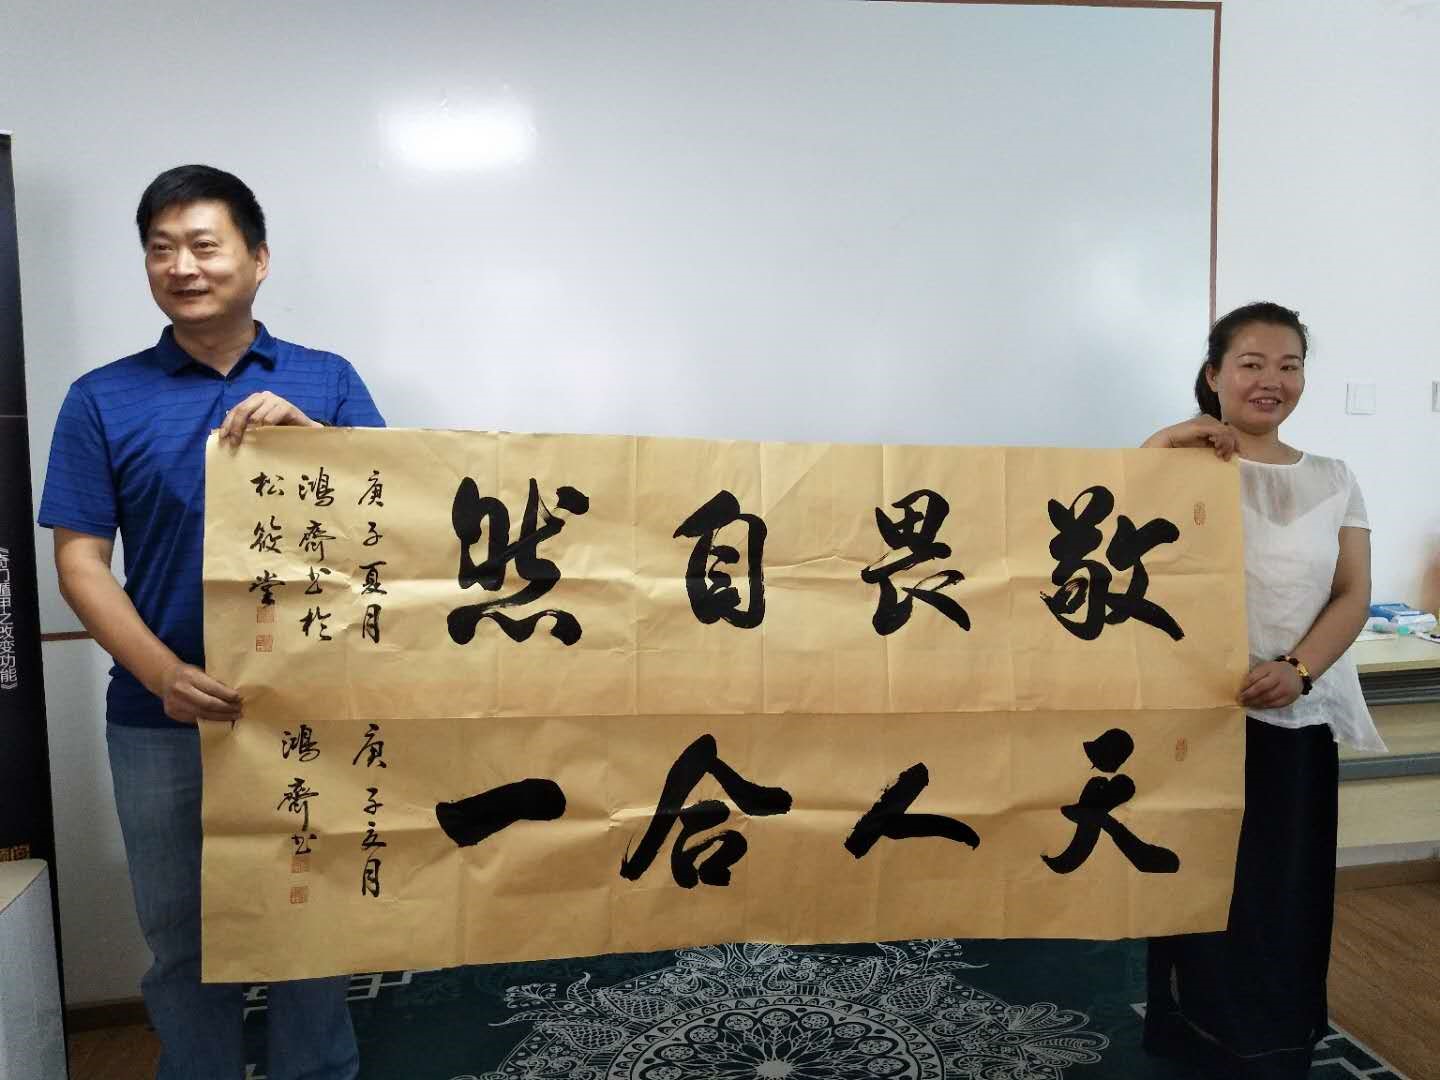 敬畏自然
庚子夏月
鴻齊书於
松筱堂
天人合一
庚子立月
鴻齊书
《奇门遁甲之改变功能》